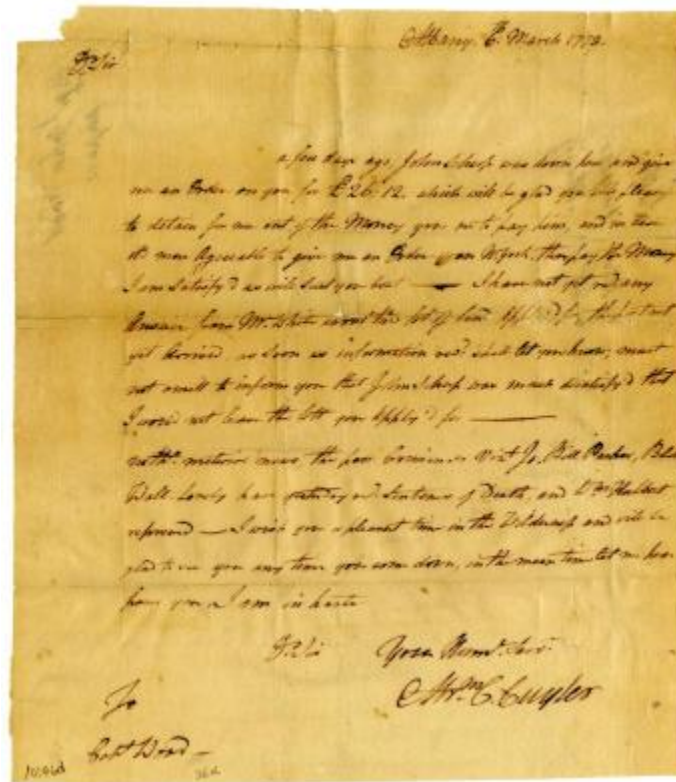 Albany, 6th March 1773.
D. Sir
a few days ago, John Scharp was down here and give
me an Order on you for £26.12. which will be glad you
to detain for me out of the Money you are to pay him, and in Case
it's more Agreeable to give me an Order upon N York, than pay the Money
I am Satisfy'd as will Suit you best — I have not yet recd any
Answer from Mr. White about the lot of land Applied for
yet Arrived, as Soon as information recd. shall let you know, must
not omitt to inform you that John Scharp was much disatisfy'd that
I would not leave the lott you Apply'd for ———
noth. material news, the poor Vizt. Jo. Bill Parker,
Wall. Lovely have yesterday recd Sentence of Death, and Wm Hulbert
reprieved — I wish you a pleasant time in the Wilderness and will be
glad to see you any time you come down, in the mean time let me hear
from you I am in haste
D. Sir Your Humb. Serv.
Abrm. C. Cuyler
To
Capt Wood —
36d